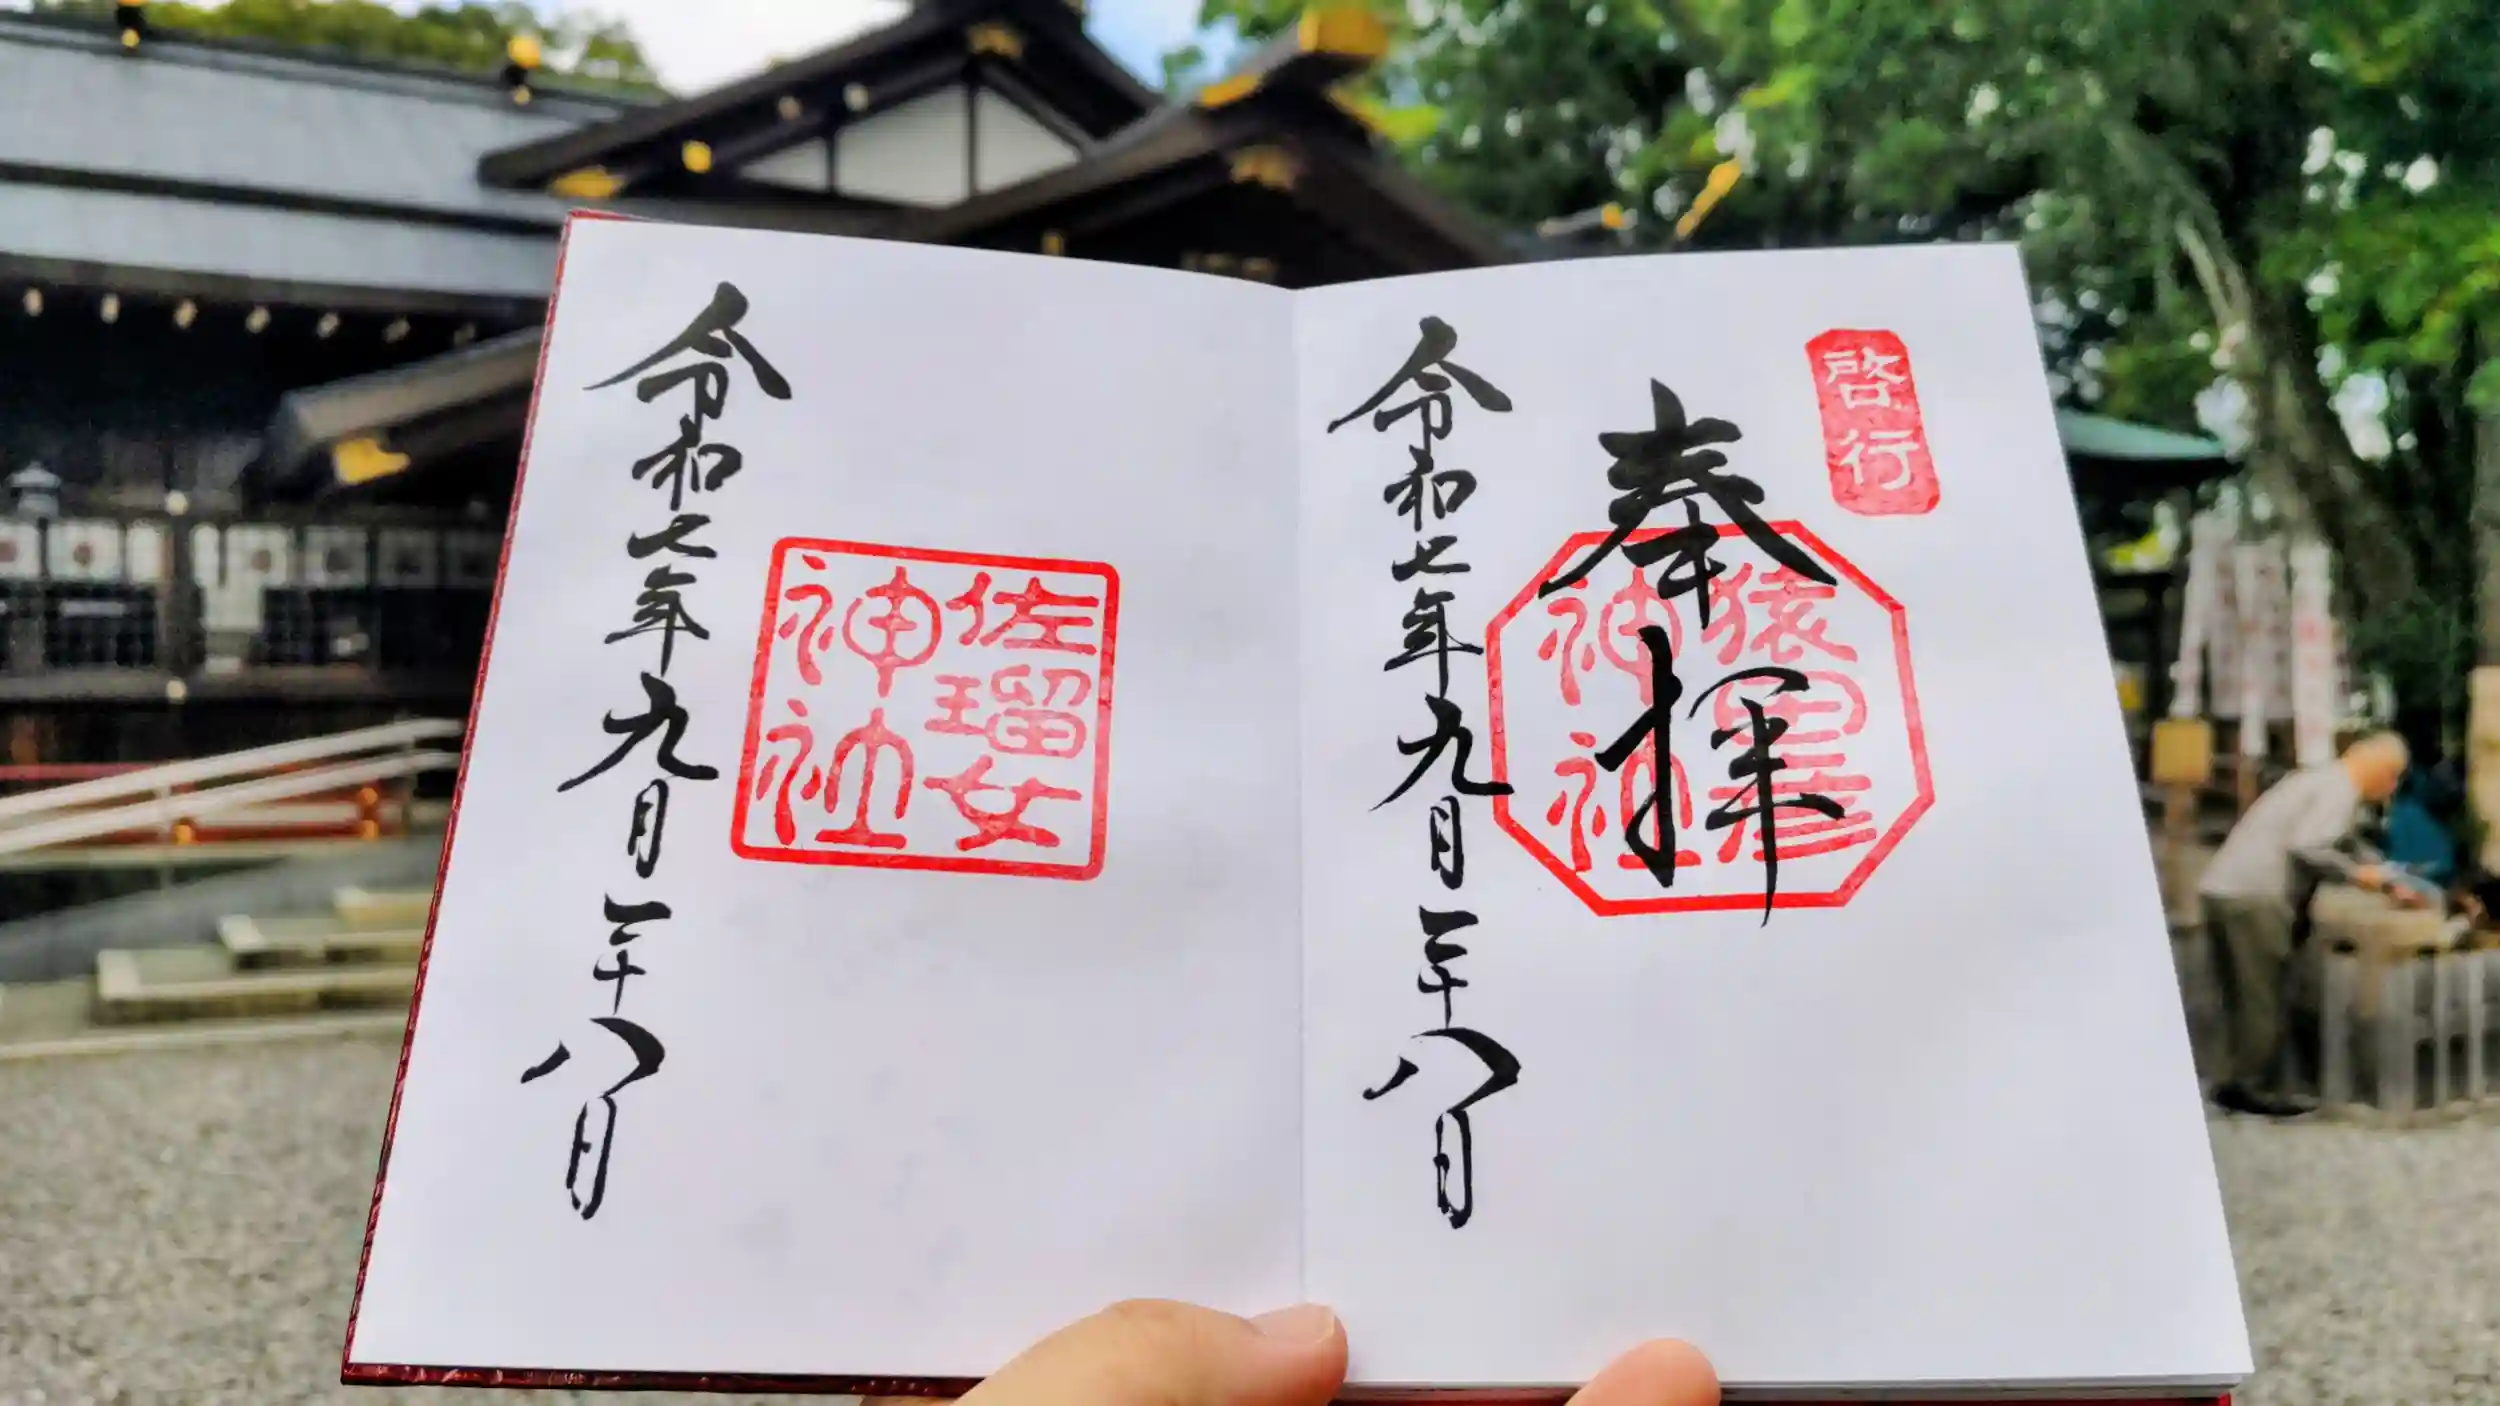 啓行
奉拝
猿田彦
神社
令和七年九月二十八日
佐瑠女
神社
令和七年九月二十八日